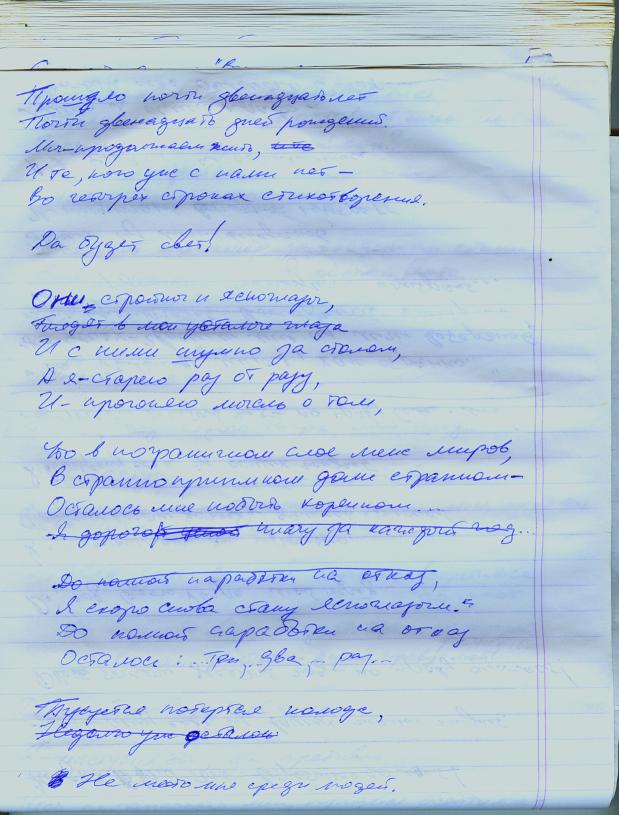 Прошло почти двенадцать лет
Почти двенадцать дней рождений.
Мы-продолжаем жить,
И те, кого уже с нами нет –
Во четырех строках стихотворения.
Да будет свет!
Они, стройны и ясноглазы,
Глядят в мои усталые глаза
И с ними шумно за столом,
А я-старею раз от разу,
И-прогоняю мысль о том,
Что в пограничном слое меж миров,
В странноприимном доме странном–
Осталось мне побыть недолго...
Я дорого плачу за каждый год...
До полной наработки на отказ,
Я скоро снова стану ясноглазым.
До полной наработки на отказ
Осталось: ...Три, ...два, ... раз...
Тусуется потертая колода,
Недолго уже осталось
Не место мне среди людей.